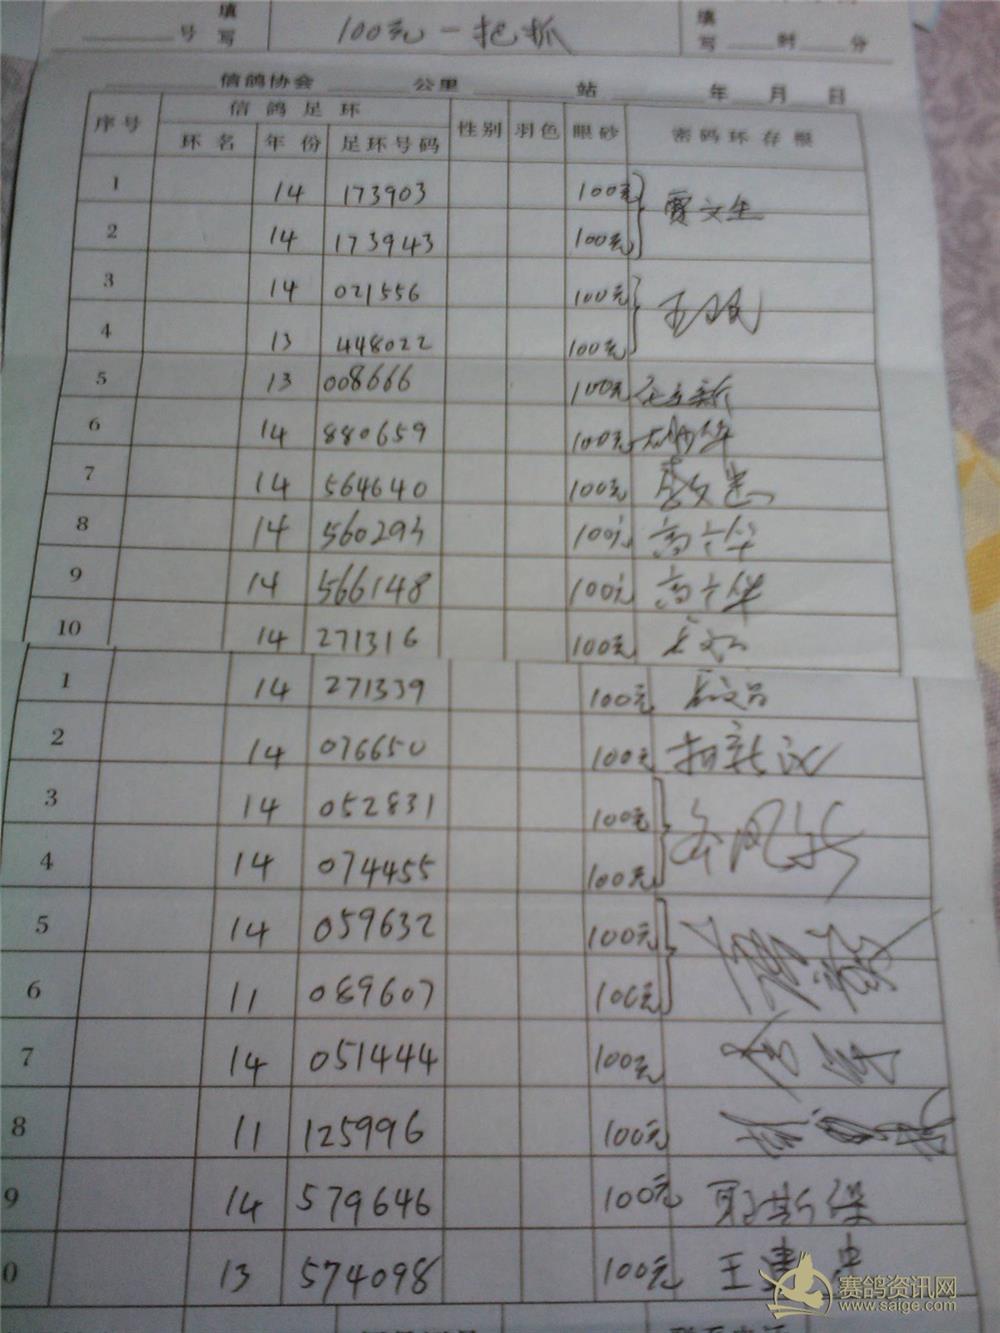 号 填写 100元一把抓 填写 时 分
信鸽协会 公里 站 年 月 日
序号 信鸽足环 性别 羽色 眼砂 密码环存根
环名 年份 足环号码
1 14 173903 100元 贾文生
2 14 173943 100元
3 14 021556 100元
4 13 448022 100元
5 13 008666 100元
6 14 880659 100元
7 14 564640 100元
8 14 560293 100元
9 14 566148 100元
10 14 271316 100元
1 14 271339 100元
2 14 076650 100元
3 14 052831 100元
4 14 074455 100元
5 14 059632 100元
6 11 089607 100元
7 14 051444 100元
8 11 125996 100元
9 14 579646 100元
0 13 574098 100元 王建忠
赛鸽资讯网
www.saige.com